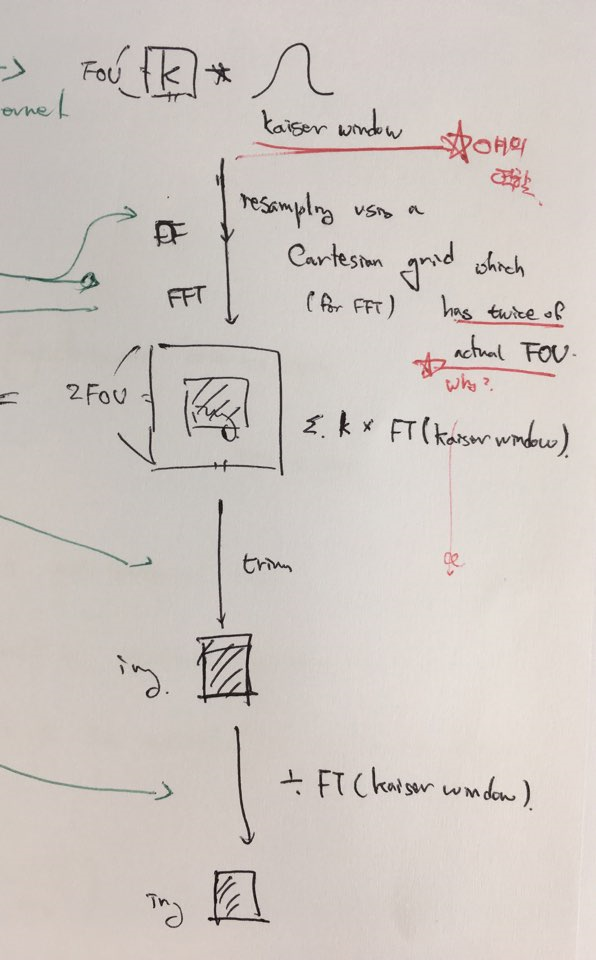 FOV k *
ernel
kaiser window
얘의
역할.
resampling using a
Cartesian grid which
(for FFT) has twice of
actual FOV.
FFT
who?
=
2FOV
img
Σ. k × FT(kaiser window).
trim
img.
÷ FT(kaiser window).
img